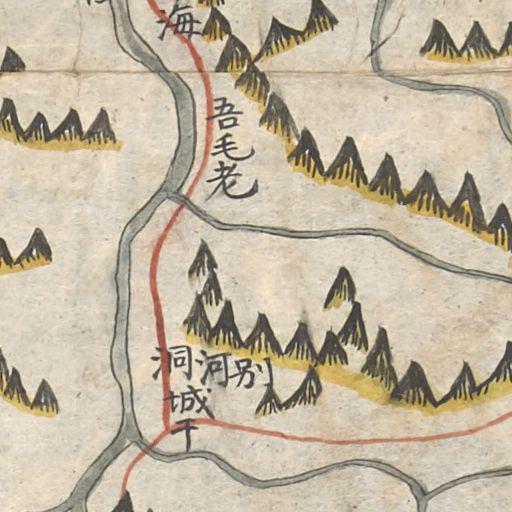 海
吾毛老
別河洞
城干